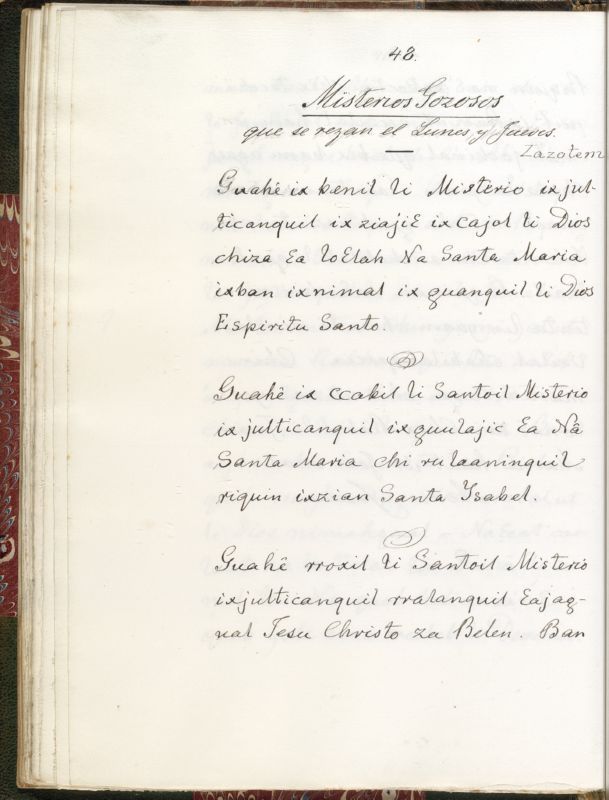 48.
Misterios Gozosos
que se rezan el Lunes, y Jueves.
Lazotem
Guahê ix benil li Misterio ixjul-
ticanquil ixziajiĉ ix cajol li Dios
chiza Ea loElah Na Santa Maria
ixban ixnimal ix guanquil li Dios
Espiritu Santo.
Guahê ix ccabil li Santoil Misterio
ix julticanquil ix guulajic Ea Nâ
Santa Maria chi rulaaninquil
riquin ixzian Santa Ysabel.
Guahê rroxil li Santoil Misterio
ixjulticanquil rralanquil Eajag-
ual Jesu Christo za Belen. Ban